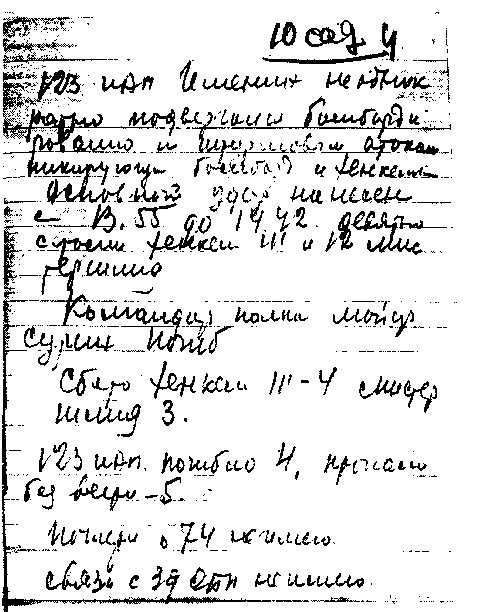 10 сад 4
123 иап Именин неоднок
ратно подвергался бомбарди
рованию и штурмовым атакам
пикирующих бомбард и хенкелей
Основной удар нанесен
с 13.55 до 14.42 девятью
хенкель 111 и 12 мис
Командир полка майор
Сурин погиб
Сбито хенкель 111 – 4 мисер
шмид 3.
123 иап. погибло 4, пропало
без вести – 5.
Потери о 74 не имею
связи с 39 не имею